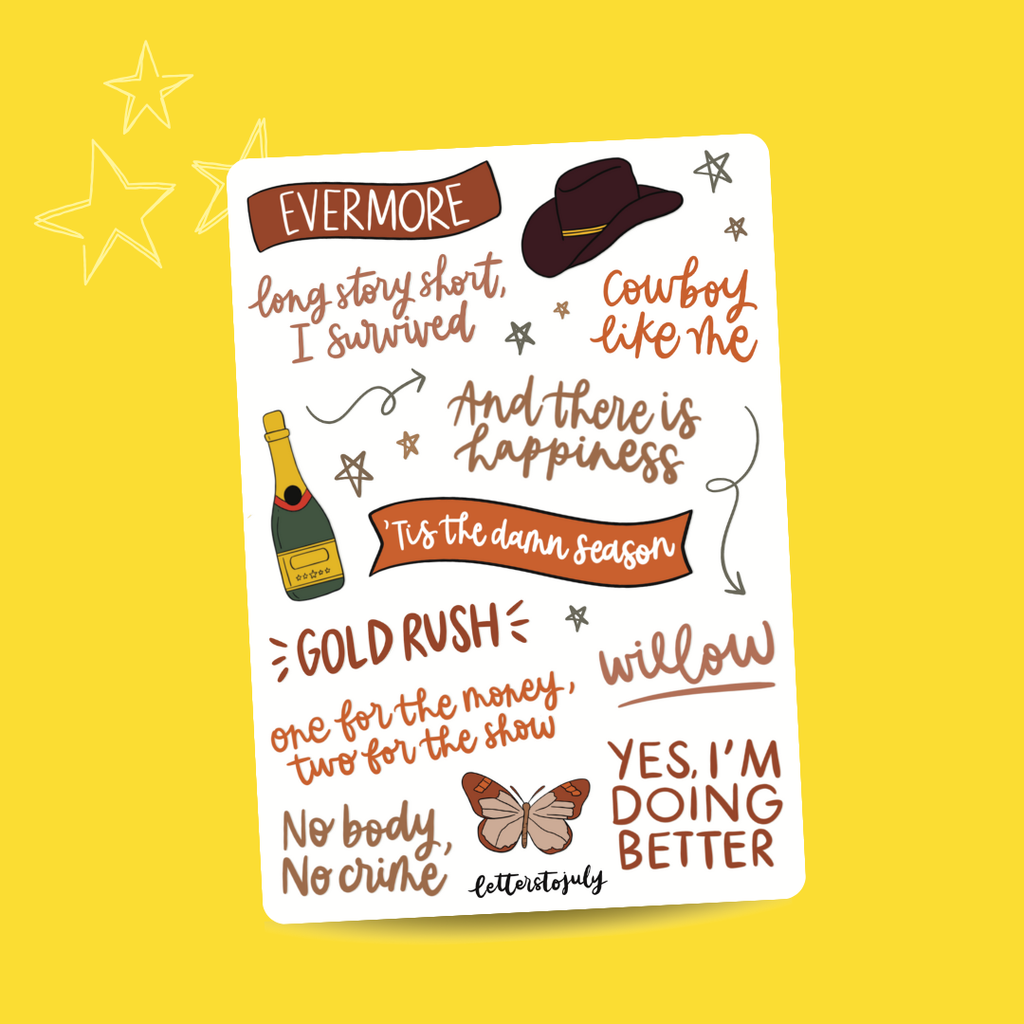 EVERMORE
long story short,
I survived
Cowboy
like me
And there is
happiness
'Tis the damn season
GOLD RUSH
willow
one for the money,
two for the show
YES, I'M
DOING
BETTER
No body,
No crime
letterstojuly